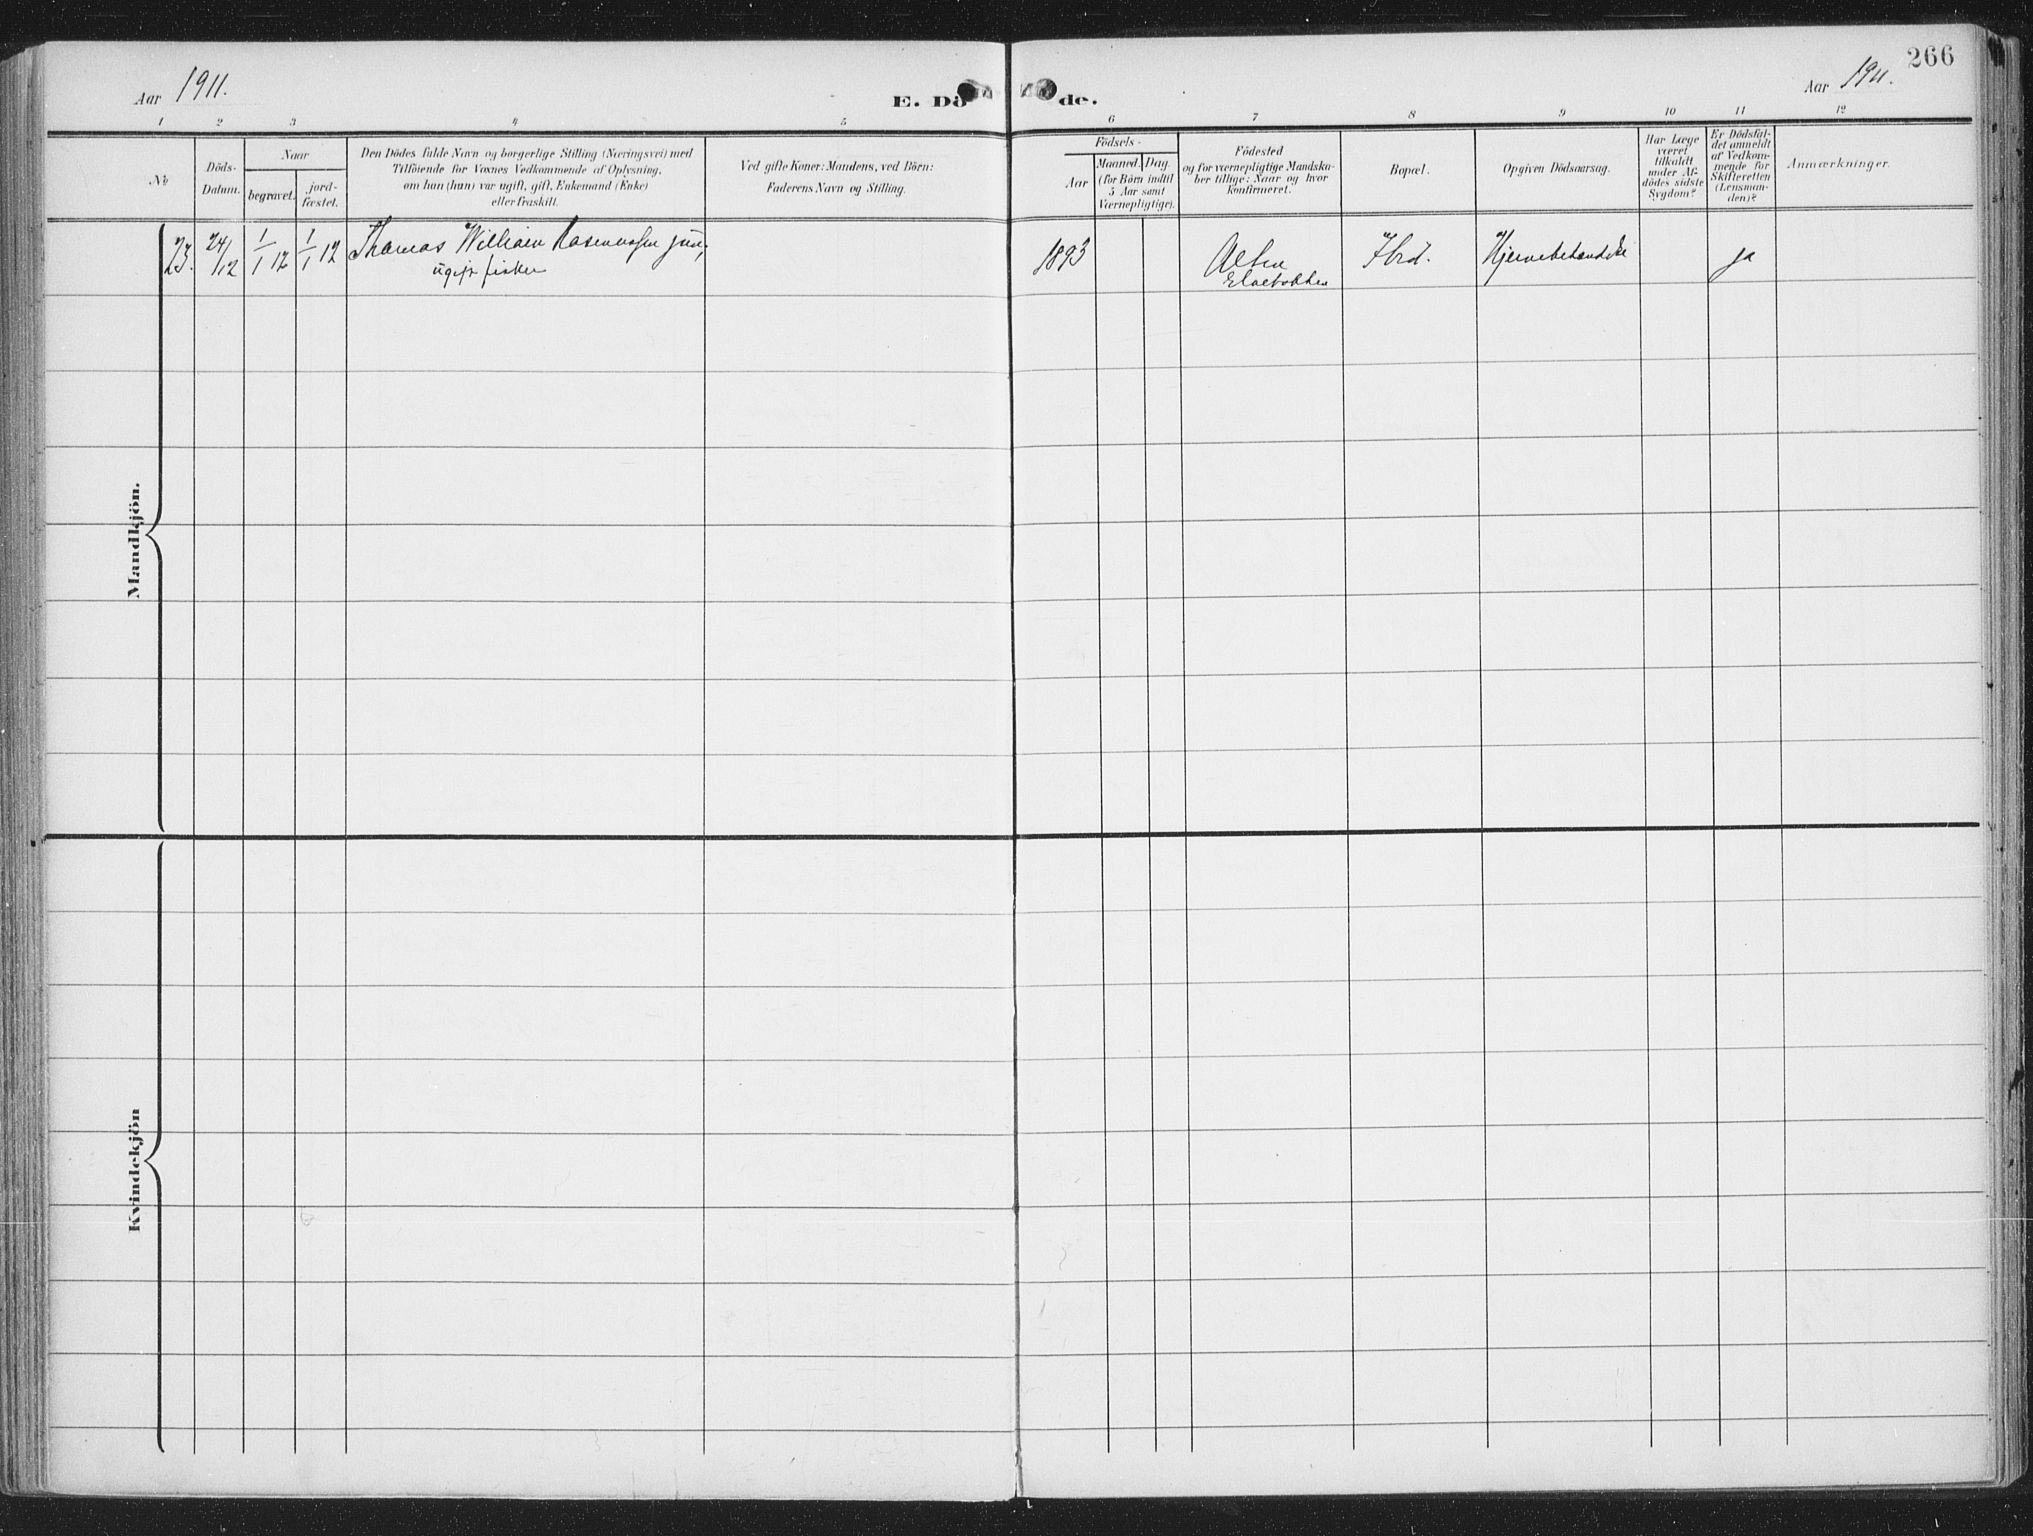 266
Aar 1911.
E. Dö
de.
Aar 1911.
1 2 3 4 5 6 7 8 9 10 11 12
No
Döds-
Datum.
Naar
begravet.
jord-
fæstet.
Den Dödes fulde Navn og borgerlige Stilling (Næringsvei) med
Tilföiende for Voxnes Vedkommende af Oplysning,
om han (hun) var ugift, gift, Enkemand (Enke)
eller fraskilt.
Ved gifte Koner: Mandens, ved Börn:
Faderens Navn og Stilling.
Födsels-
Aar
Maaned.
Dag.
(for Börn indtil
5 Aar samt
Værnepligtige).
Födested
og for værnepligtige Mandska-
ber tillige: Naar og hvor
konfirmeret.
Bopæl.
Opgiven Dödsaarsag.
Har Læge
været
tilkaldt
under Af-
dödes sidste
Sygdom?
Er Dödsfal-
det anmeldt
af Vedkom-
mende for
Skifteretten
(Lensman-
den)?
Anmærkninger.
23. 24/12 1/1 12 1/1 12 Thomas William jun, 1893 Alten Hjernebetændelse ja
ugift fisker Elvebakken
Mandkjön.
Kvindekjön